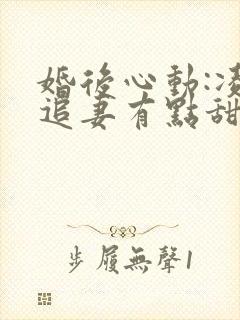 婚後心動:凌
追妻有點甜
步履無聲1